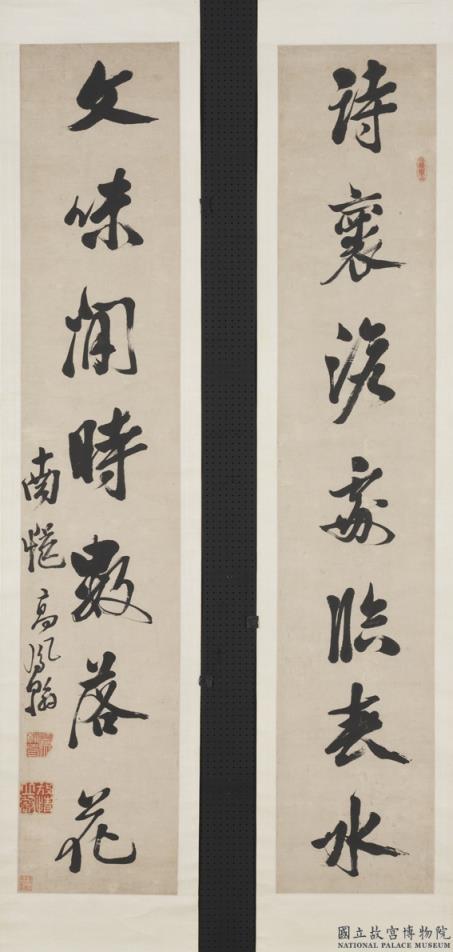 詩褱澹處臨春水
文味閒時數落花
南 高鳳翰
國立故宮博物院
NATIONAL PALACE MUSEUM